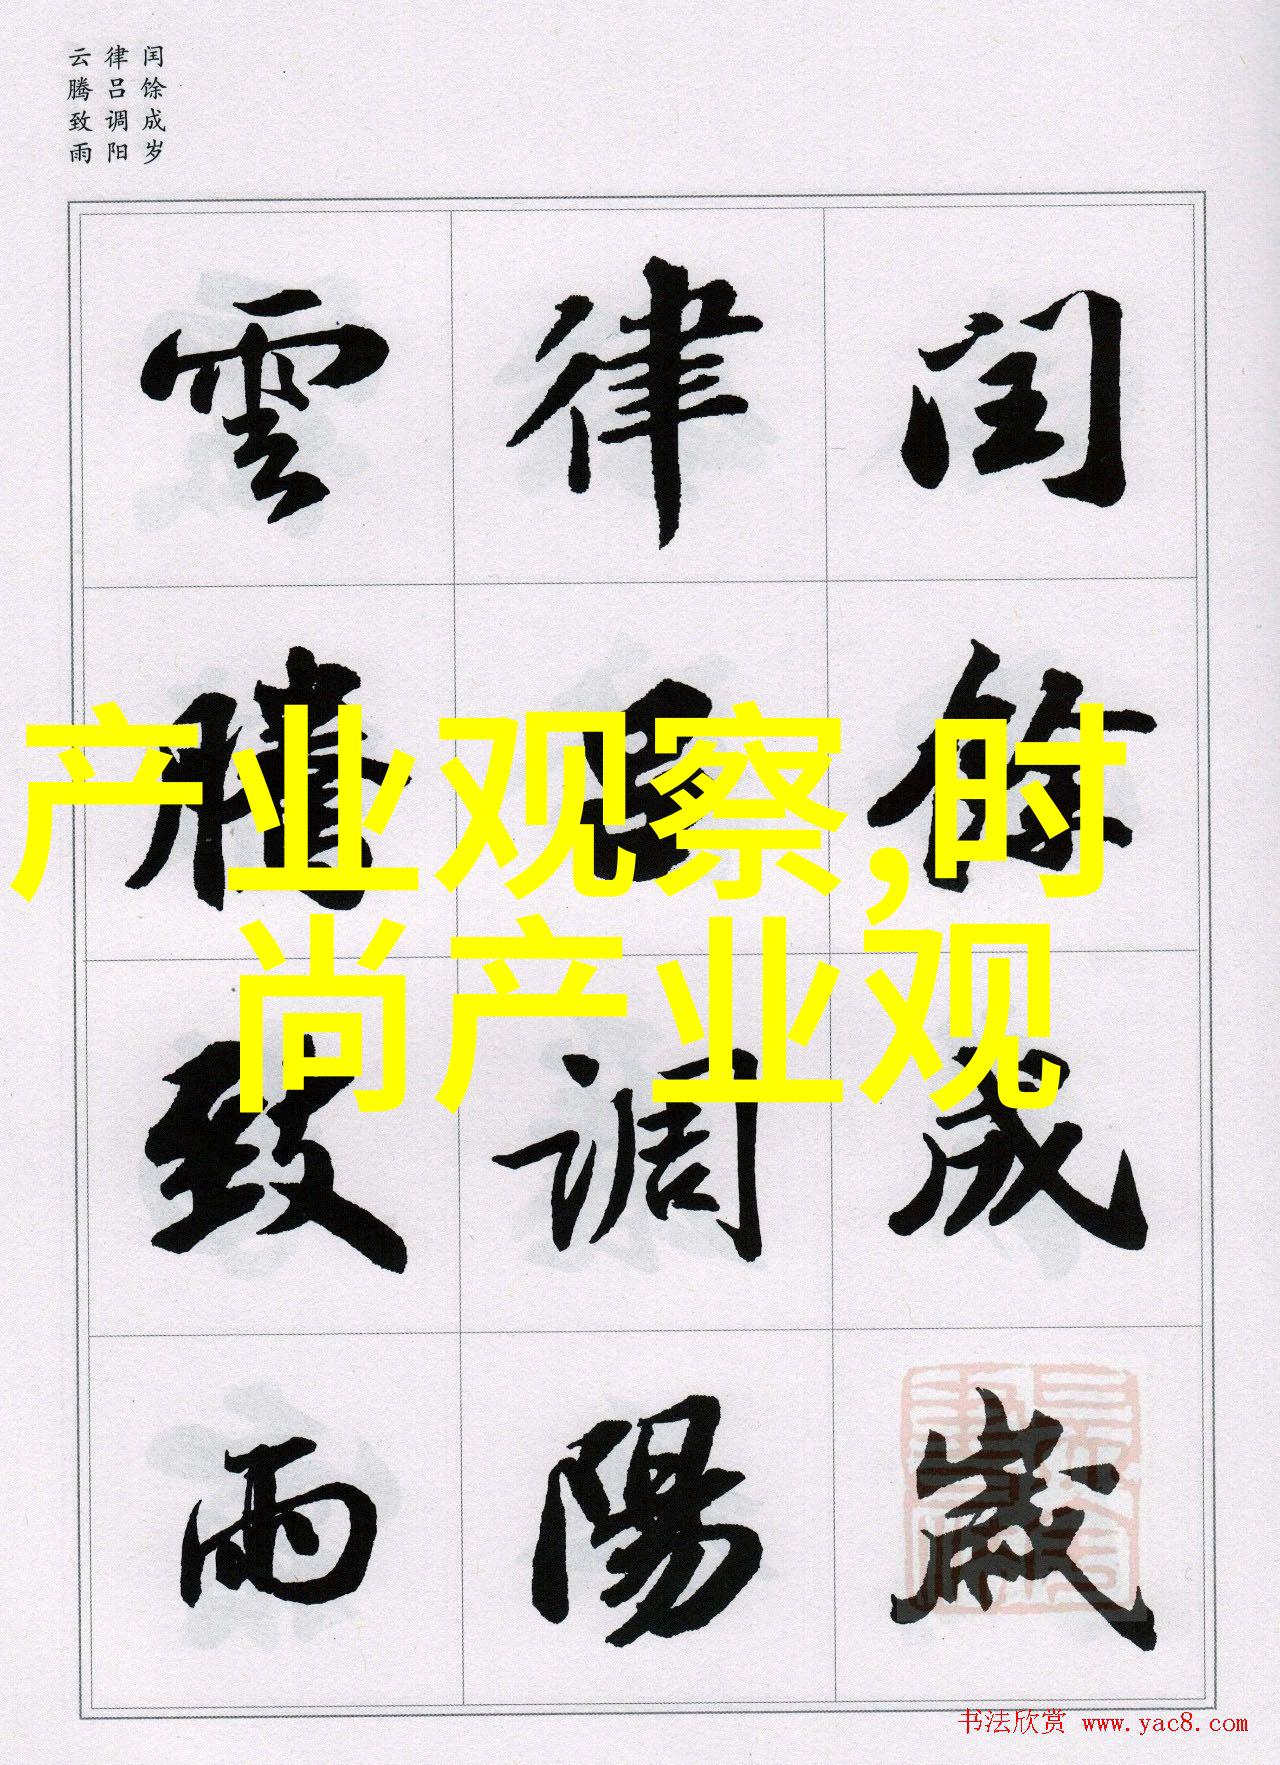 闰馀成岁
律吕调阳
云腾致雨
闰餘成歲
律吕調陽
雲騰致雨
产业观察,时
尚产业观
书法欣赏 www.yac8.com